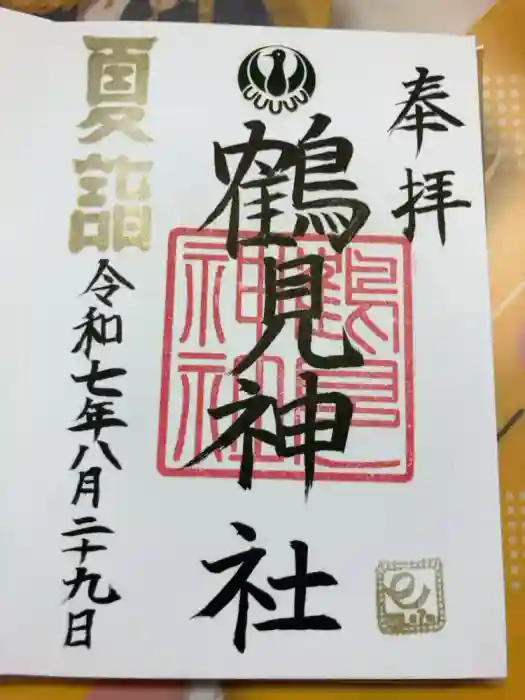 奉拝
鶴見神社
鶴見神社
夏詣
令和七年八月二十九日